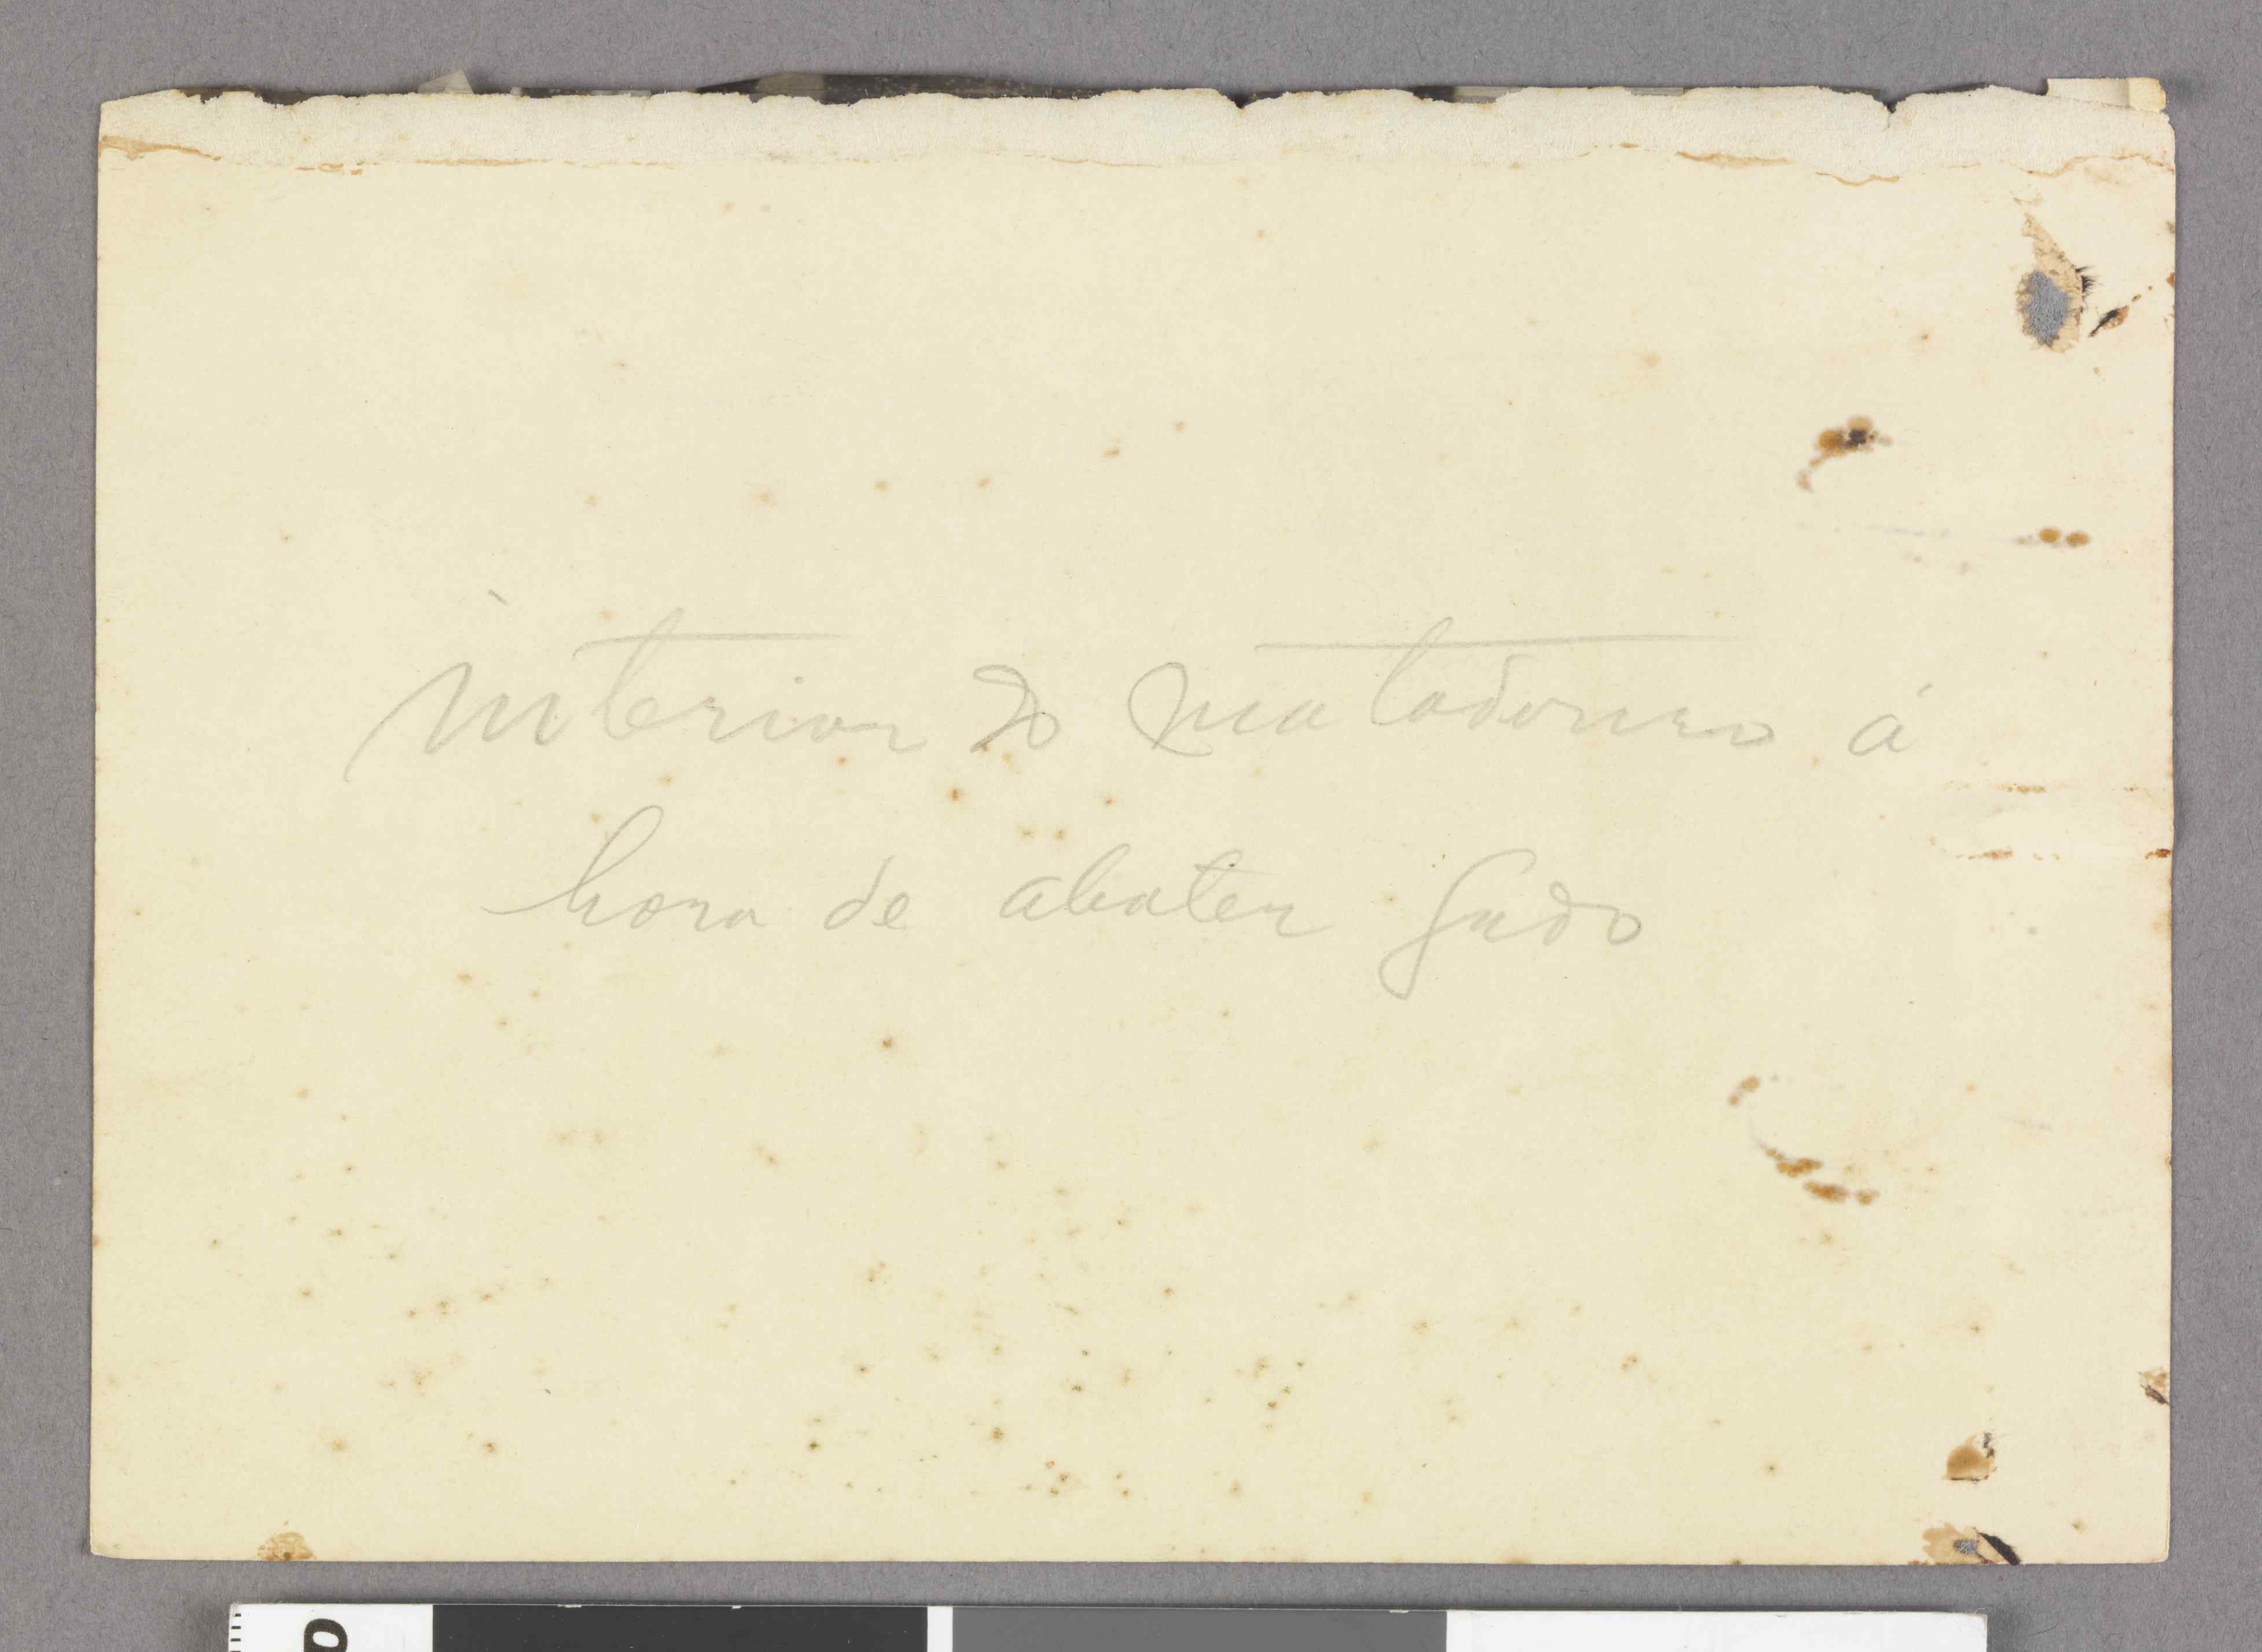 interior do matadouro á
hora de abater gado